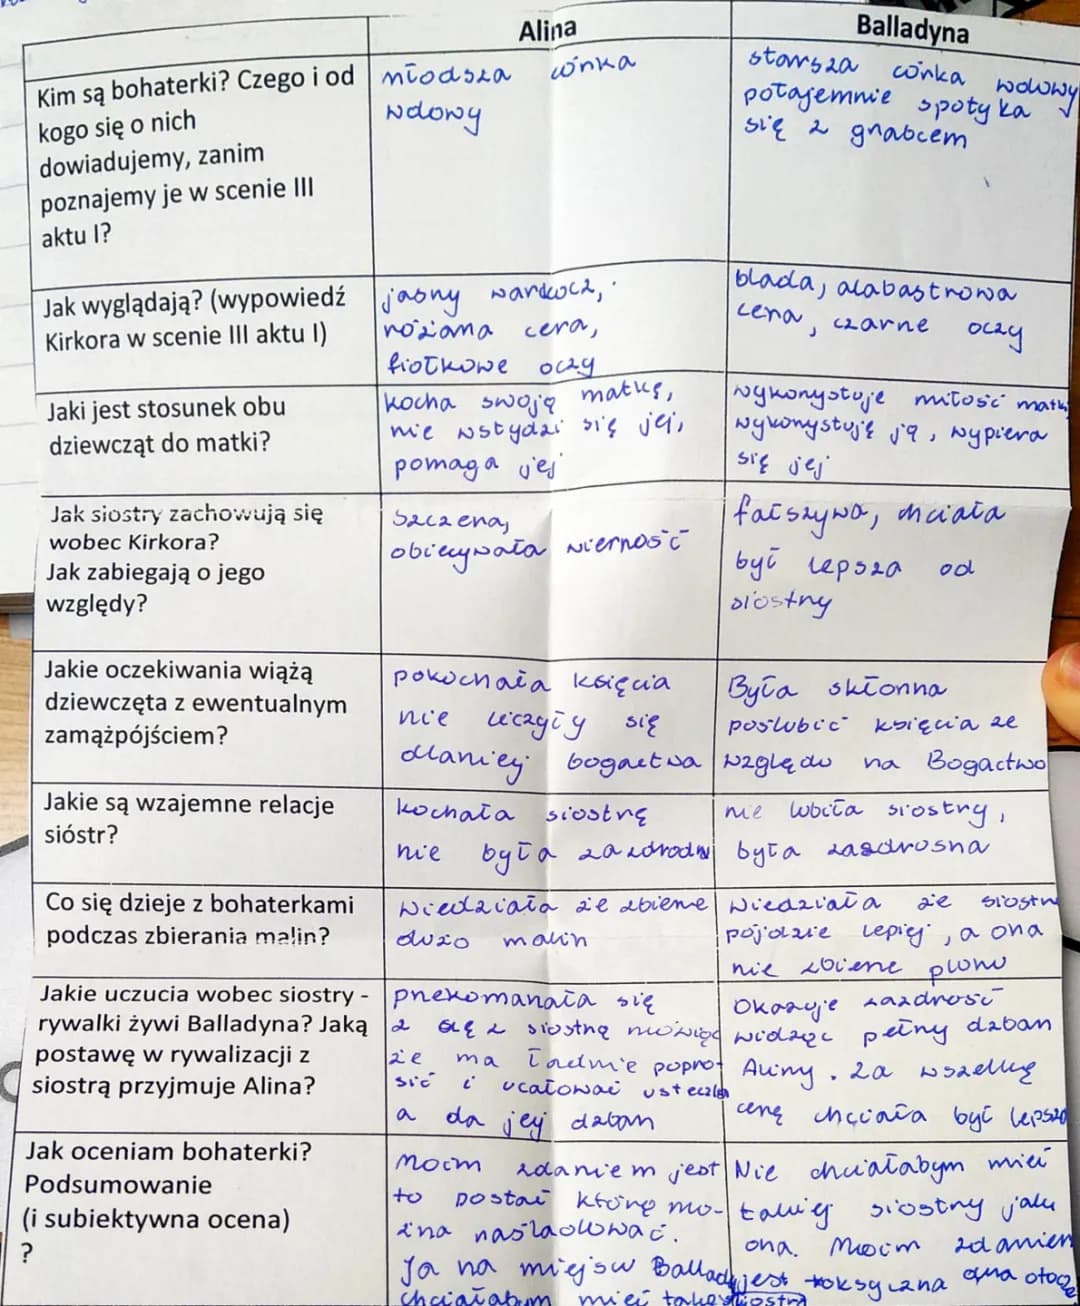 Alina
Balladyna
Kim są bohaterki? Czego i od
kogo się o nich
dowiadujemy, zanim
poznajemy je w scenie III
aktu I?
młodsza córka
wdowy
starsza córka wdowy
potajemnie spotyka
się z grabcem
Jak wyglądają? (wypowiedź
Kirkora w scenie III aktu I)
jasny warkocz,
różana cera,
fiołkowe oczy
blada, alabastrowa
cera, czarne oczy
Jaki jest stosunek obu
dziewcząt do matki?
kocha swoję matkę,
nie wstydzi się jej,
pomaga jej
wykorzystuje miłość matki
wykorzystuję ją, wypiera
się jej
Jak siostry zachowują się
wobec Kirkora?
Jak zabiegają o jego
względy?
Szczera,
obiecywała wierność
fałszywa, chciała
być lepsza od
siostry
Jakie oczekiwania wiążą
dziewczęta z ewentualnym
zamążpójściem?
pokochała księcia
nie liczyły się
dlaniej bogactwa
Była skłonna
poślubić księcia ze
względu na Bogactwo
Jakie są wzajemne relacje
sióstr?
kochała siostrę
nie była zazdrodna
nie lubiła siostry,
była zazdrosna
Co się dzieje z bohaterkami
podczas zbierania malin?
Wiedziała że zbierze
dużo malin
Wiedziała że siostrze
pójdzie lepiej, a ona
nie zbierze plonu
Jakie uczucia wobec siostry -
rywalki żywi Balladyna? Jaką
postawę w rywalizacji z
siostrą przyjmuje Alina?
przekomarzała się
z siostrą mówiąc
że ma ładnie popro-
sić i ucałować usteczka
a da jej dzban
Okazuje zazdrość
widząc pełny dzban
Aliny. Za wszelką
cenę chciała być lepsza
Jak oceniam bohaterki?
Podsumowanie
(i subiektywna ocena)
?
Moim zdaniem jest
to postać którą mo-
żna naśladować.
Ja na miejscu Ballady
chciałabym mieć taką siostrą
Nie chciałabym mieć
takiej siostry jak
ona. Moim zdaniem
jest toksyczna dla otocze